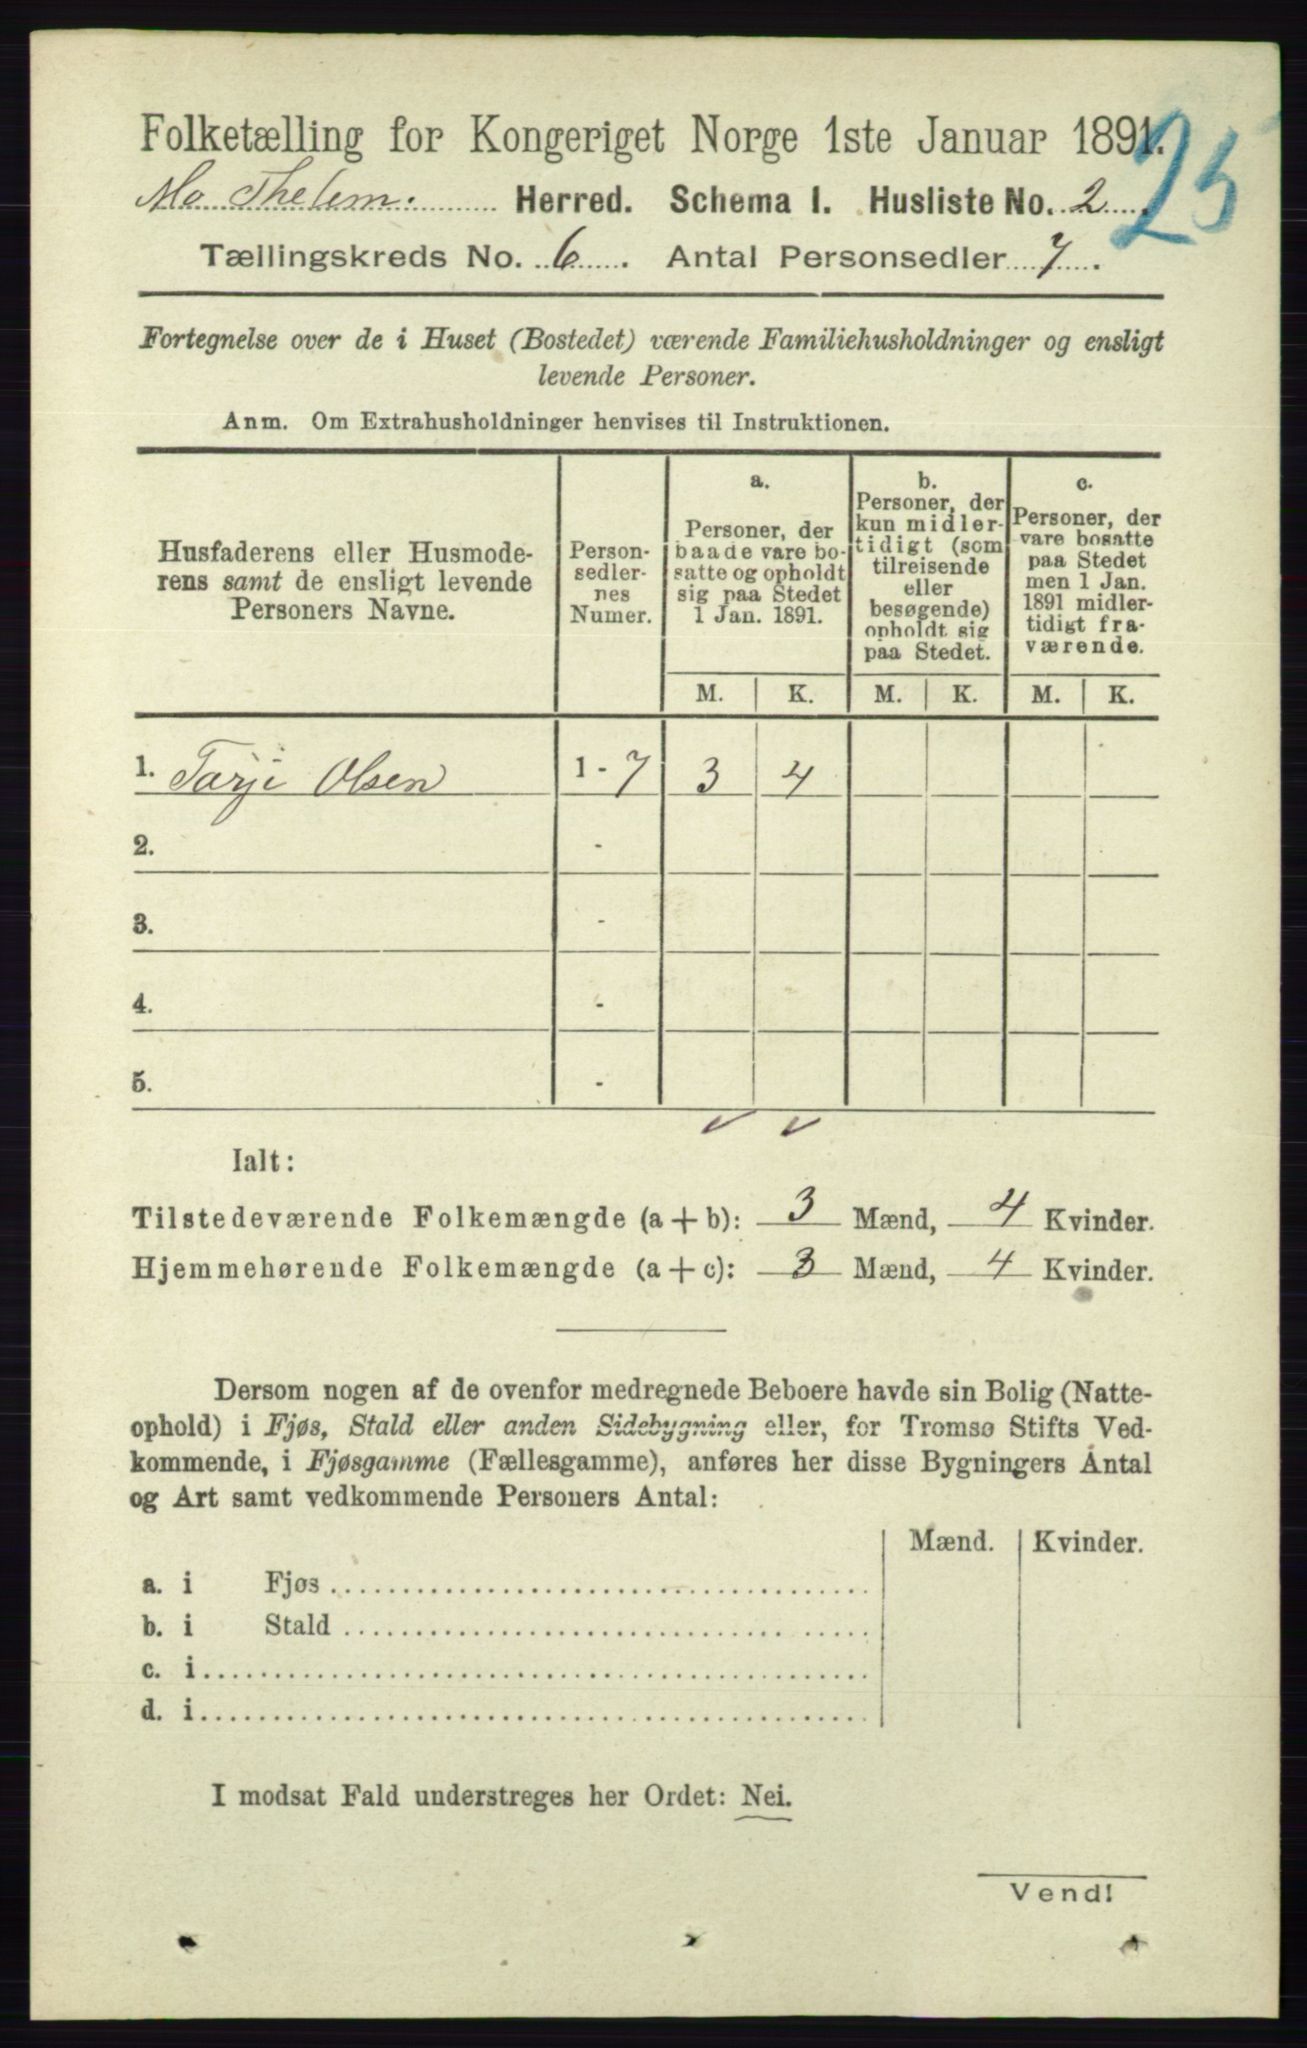 Folketælling for Kongeriget Norge 1ste Januar 1891.
25
Mo Thelem. Herred. Schema I. Husliste No. 2.
Tællingskreds No. 6. Antal Personsedler 7.
Fortegnelse over de i Huset (Bostedet) værende Familiehusholdninger og ensligt
levende Personer.
Anm. Om Extrahusholdninger henvises til Instruktionen.
Husfaderens eller Husmode-
rens samt de ensligt levende
Personers Navne.
Person-
sedler-
nes
Numer.
a.
Personer, der
baade vare bo-
satte og opholdt
sig paa Stedet
1 Jan. 1891.
b.
Personer, der
kun midler-
tidigt (som
tilreisende
eller
besøgende)
opholdt sig
paa Stedet.
c.
Personer, der
vare bosatte
paa Stedet
men 1 Jan.
1891 midler-
tidigt fra-
værende.
M. K. M. K. M. K.
1. Tarje Olsen 1 - 7 3 4
2. -
3. -
4. -
5. -
Ialt:
Tilstedeværende Folkemængde (a + b): 3 Mænd, 4 Kvinder.
Hjemmehørende Folkemængde (a + c): 3 Mænd, 4 Kvinder.
Dersom nogen af de ovenfor medregnede Beboere havde sin Bolig (Natte-
ophold) i Fjøs, Stald eller anden Sidebygning eller, for Tromsø Stifts Ved-
kommende, i Fjøsgamme (Fællesgamme), anføres her disse Bygningers Antal
og Art samt vedkommende Personers Antal:
Mænd. Kvinder.
a. i Fjøs
b. i Stald
c. i
d. i
I modsat Fald understreges her Ordet: Nei.
Vend!